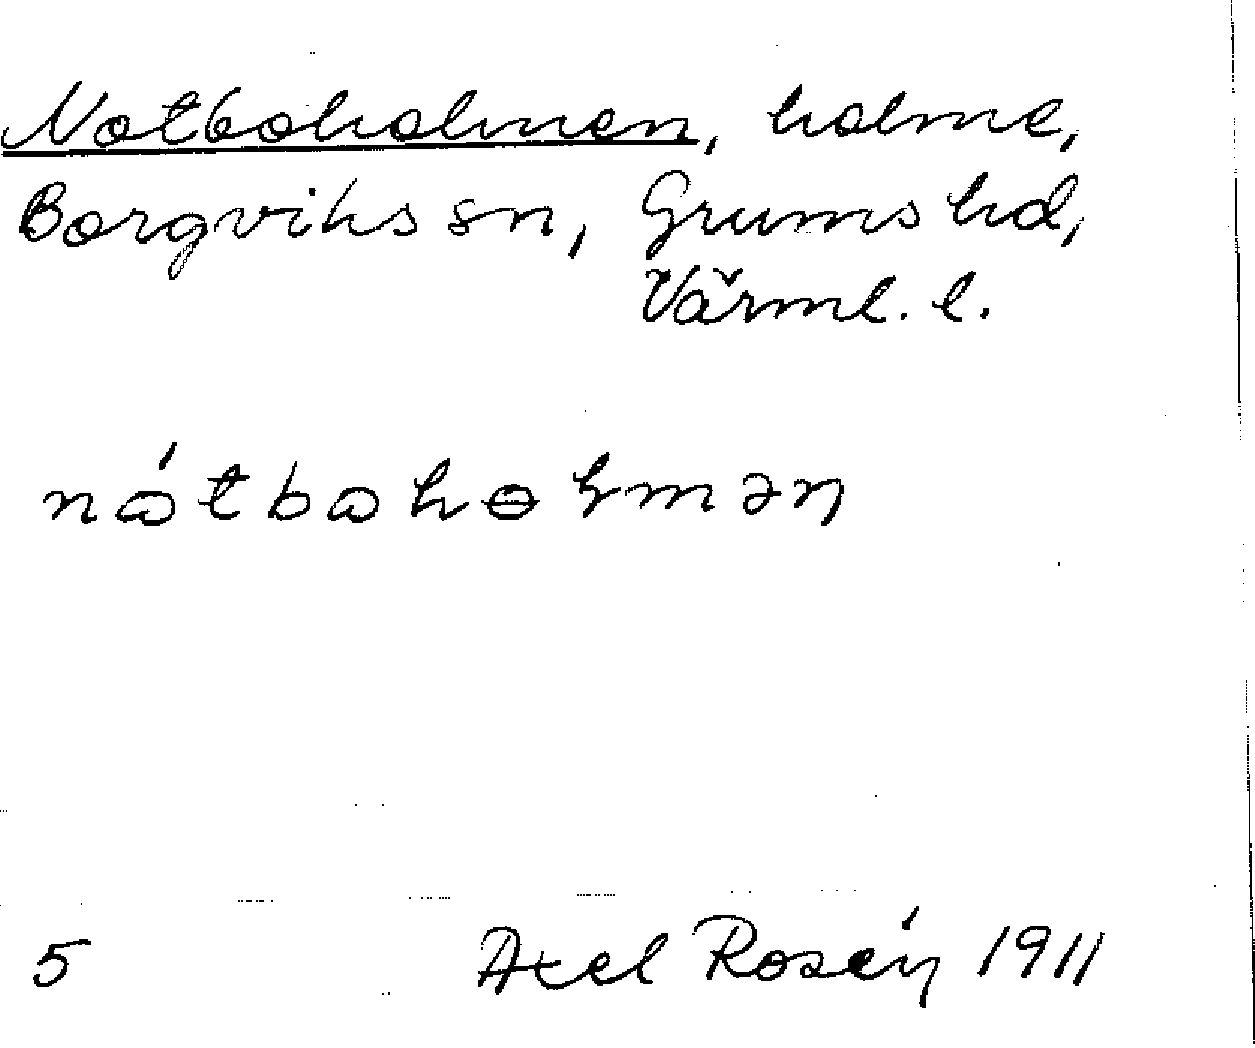 Notboholmen, holme,
Borgviks sn, Grums hd,
Värml. l.
nɷ́tbɷhɵɽmən
5 Axel Rosén 1911